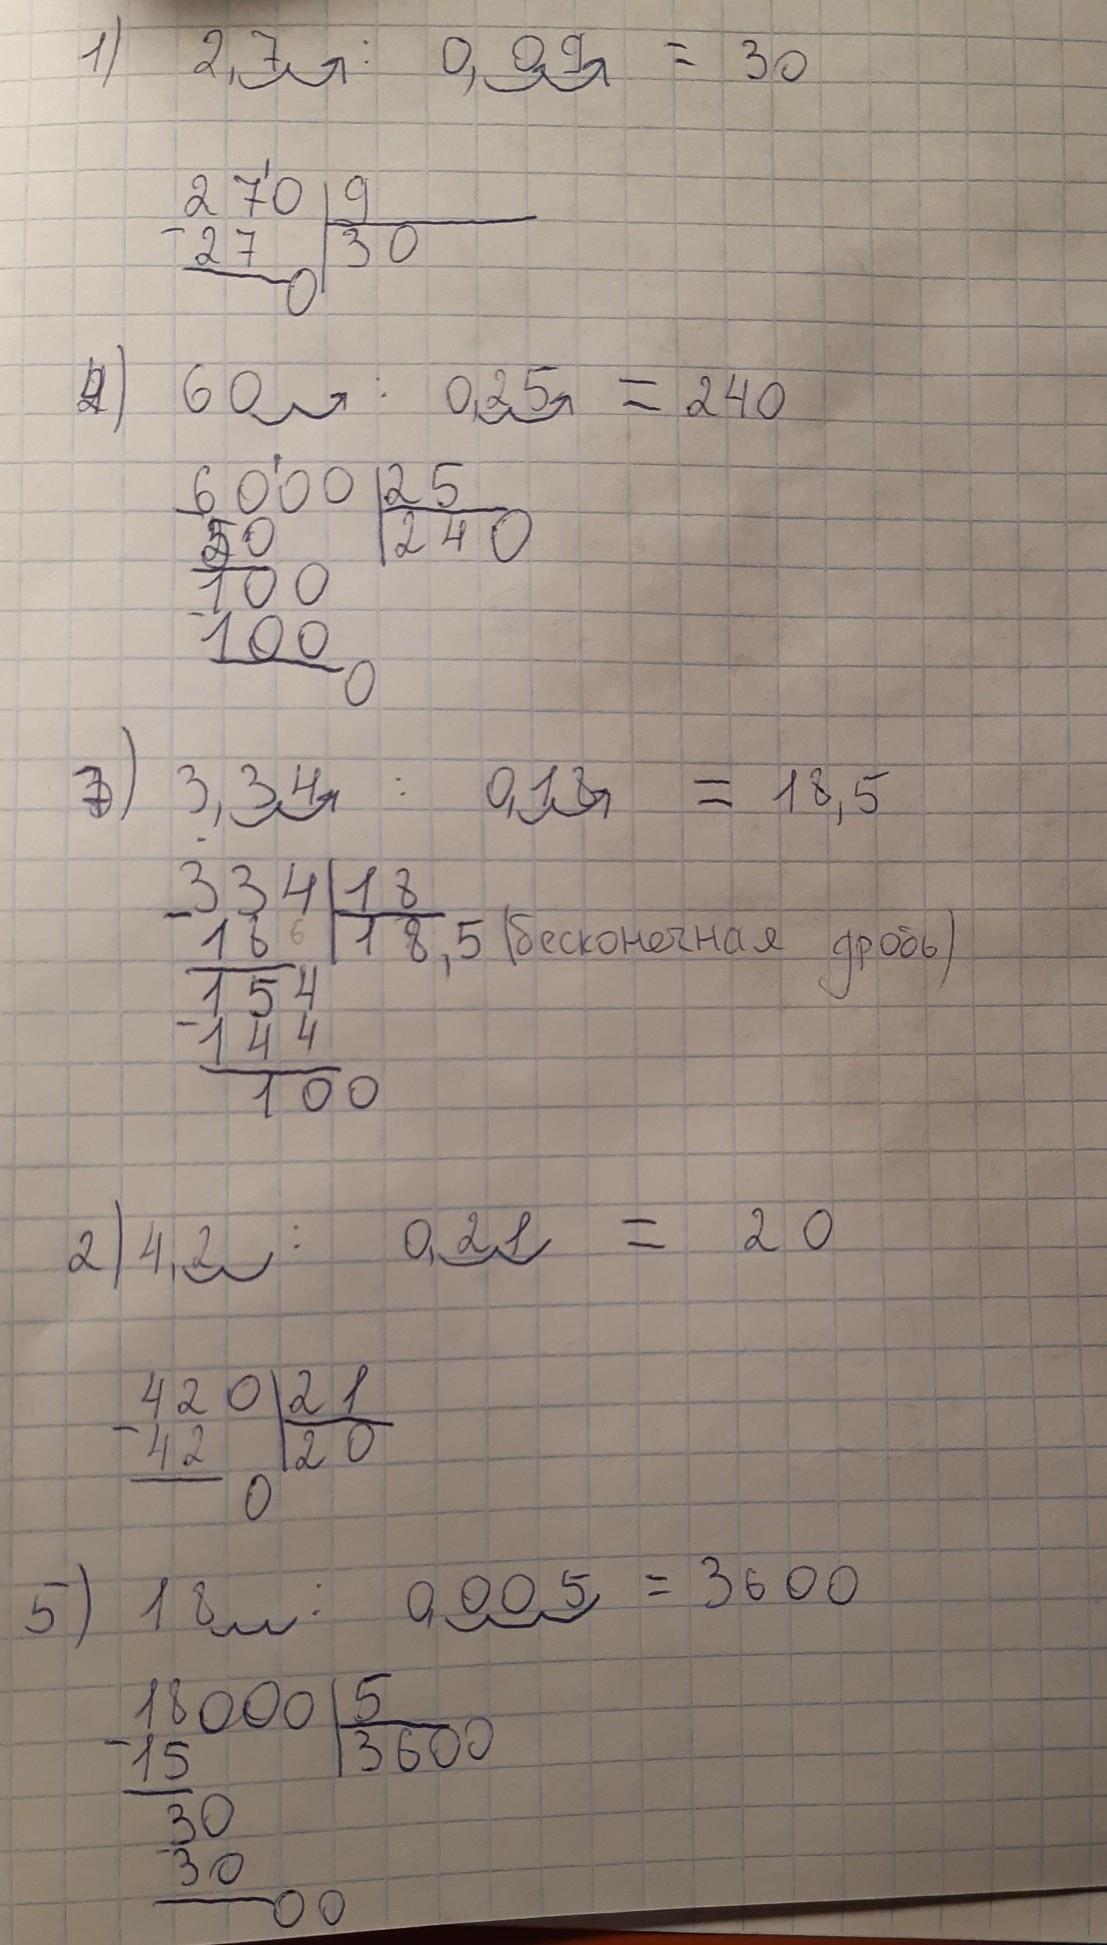 1) 2,7 : 0,09 = 30
270 | 9
-27 | 30
0
4) 60 : 0,25 = 240
6000 | 25
-50 | 240
100
-100
0
3) 3,34 : 0,18 = 18,5
334 | 18
-18 | 18,5 (бесконечная дробь)
154
-144
100
2) 4,2 : 0,21 = 20
420 | 21
-42 | 20
0
5) 18 : 0,005 = 3600
18000 | 5
-15 | 3600
30
-30
00